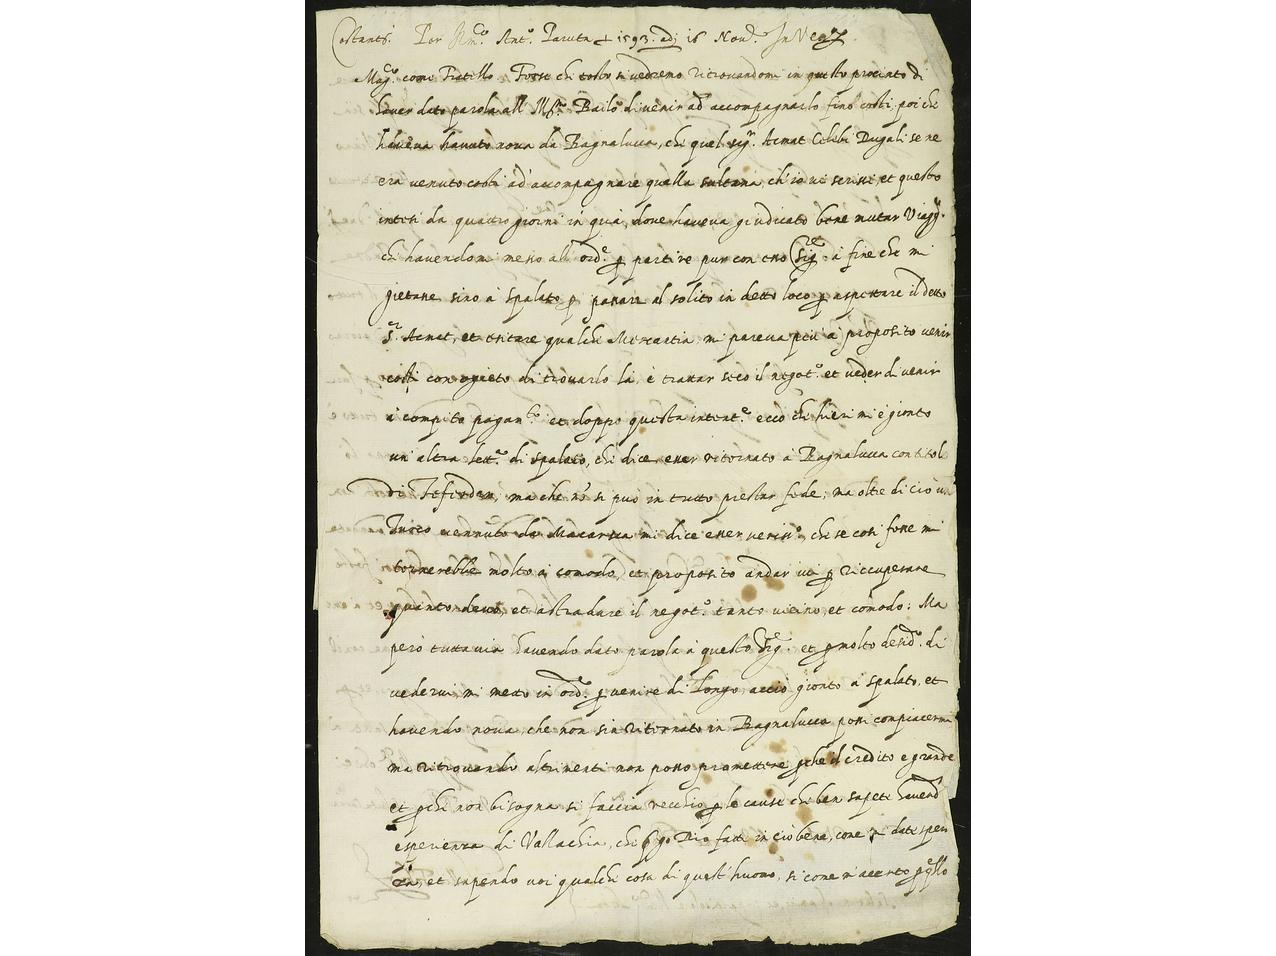 Costanti. Per Ant.o Paruta + 1593. adi 16 Nov. In Ven.
Mag.co come Fratello Forse che tosto si vedremo ritrovandomi in questo procinto di
haver dato parola all Bailo di venir ad accompagnarlo fino costi, poi che
haveva havuto nova da Bagnalucca, che quel sig.r Acmat Celebi Dugali se ne
era venuto costi ad' accompagnare qualla sultana, ch'io vi scrissi, et questo
intesi da quatro giorni in qua, dove haveva giudicato bene mutar Viagg.o
che havendomi messo all' ord.e p partire pur con Sig.re a fine che mi
gietasse sino a Spalato p passare al solito in detto loco p aspettare il detto
S.r Acmat, et esitare qualche Mercantia mi pareva piu a proposito venir
costi con di trovarlo la, e trattar seco il negot.o et veder di venir
a compito pagam.to et doppo questa intent.e ecco che hieri mi è gionto
un' altra lett.ra di Spalato, che dice esser ritornato a Bagnalucca con titol
Di Tefterdar, ma che nò si può in tutto prestar fede, ma oltre di cio un
Turco vennuto da Macarsca mi dice esser verisi.o che se cosi fosse mi
tornerebbe molto a comodo, et proposito andar vi p riccuperare
quanto devo, et astradare il negot.o tanto vicino, et còmodo: Ma
però tuttavia havendo dato parola a questo Sig.re et p molto desid.o di
vedervi mi metto in ord.e p venire di longo acciò gionto a Spalato, et
havendo nova che non sia ritornato in Bagnalucca possi compiacermi
ma ritrovando altrimenti non posso promettere pche il credito e grande
et pche non bisogna si faccia vecchio p le cause che ben sapete havend
esperienza di Vallachia, che Dio fatti in ciò bene, come dati speran
za, et sapendo voi qualche cosa di quest' huomo, si come m' accerto p q.llo